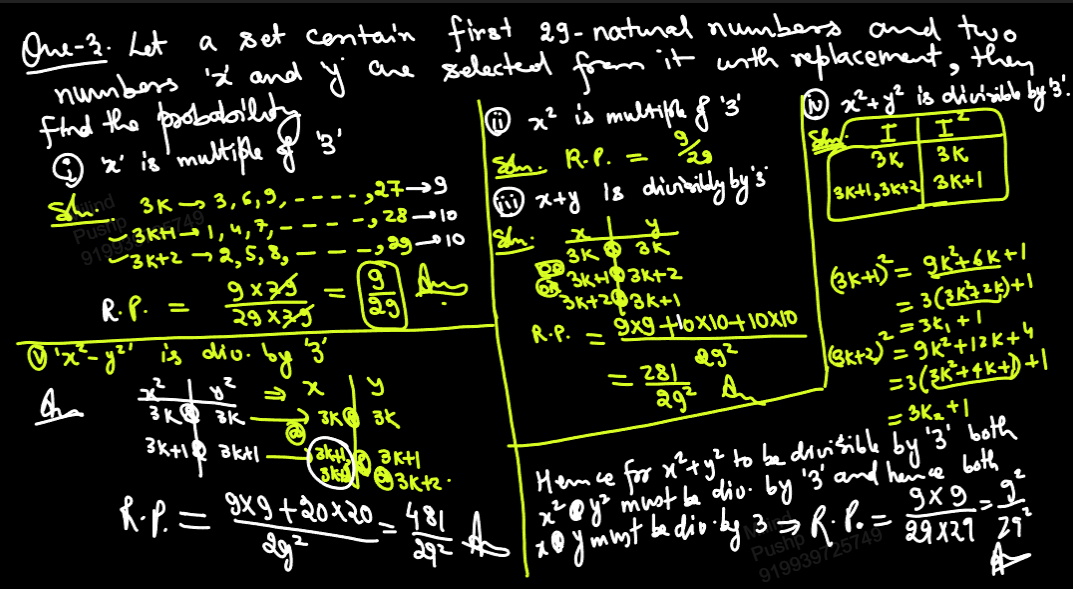 Que-3. Let a set contain first 29-natural numbers and two
numbers 'x' and y are selected from it with replacement, then
find the probability
(i) 'x' is multiple of '3'
Soln. 3K → 3, 6, 9, - - - -, 27 → 9
3K+1 → 1, 4, 7, - - - -, 28 → 10
3K+2 → 2, 5, 8, - - - -, 29 → 10
R.P. = 9×29/29×29 = 9/29 Ans
(ii) x² is multiple of '3'
Soln. R.P. = 9/29
(iii) x+y is divisibly by '3'
Soln: x | y
3K & 3K
OR 3K+1 & 3K+2
OR 3K+2 & 3K+1
R.P. = 9×9+10×10+10×10/29²
= 281/29² Ans
(iv) x²+y² is divisible by '3'.
Soln: I | I²
3K | 3K
3K+1, 3K+2 | 3K+1
(3K+1)² = 9K²+6K+1
= 3(3K²+2K)+1
= 3K₁+1
(3K+2)² = 9K²+12K+4
= 3(3K²+4K+1)+1
= 3K₂+1
Hence for x²+y² to be divisible by '3' both
x² & y² must be div. by '3' and hence both
x & y must be div. by 3 ⇒ R.P. = 9×9/29×29 = 9²/29²
Ans
(v) 'x²-y²' is div. by '3'
Ans x² | y² ⇒ x | y
3K & 3K → 3K & 3K
3K+1 & 3K+1 → 3K+1, 3K+2 & 3K+1
3K+2.
R.P. = 9×9+20×20/29² = 481/29² Ans
Pushp
919939725749